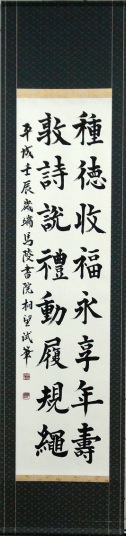 種徳收福永享年壽
敦詩說禮動履規繩
平成壬辰歳端馬陵書院相望試筆